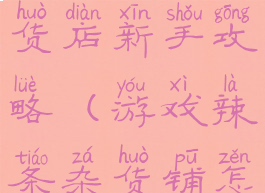 huò diàn xīn shǒu gōng
货店新手攻
lüè yóu xì là
略（游戏辣
tiáo zá huò pū zěn
条杂货铺怎